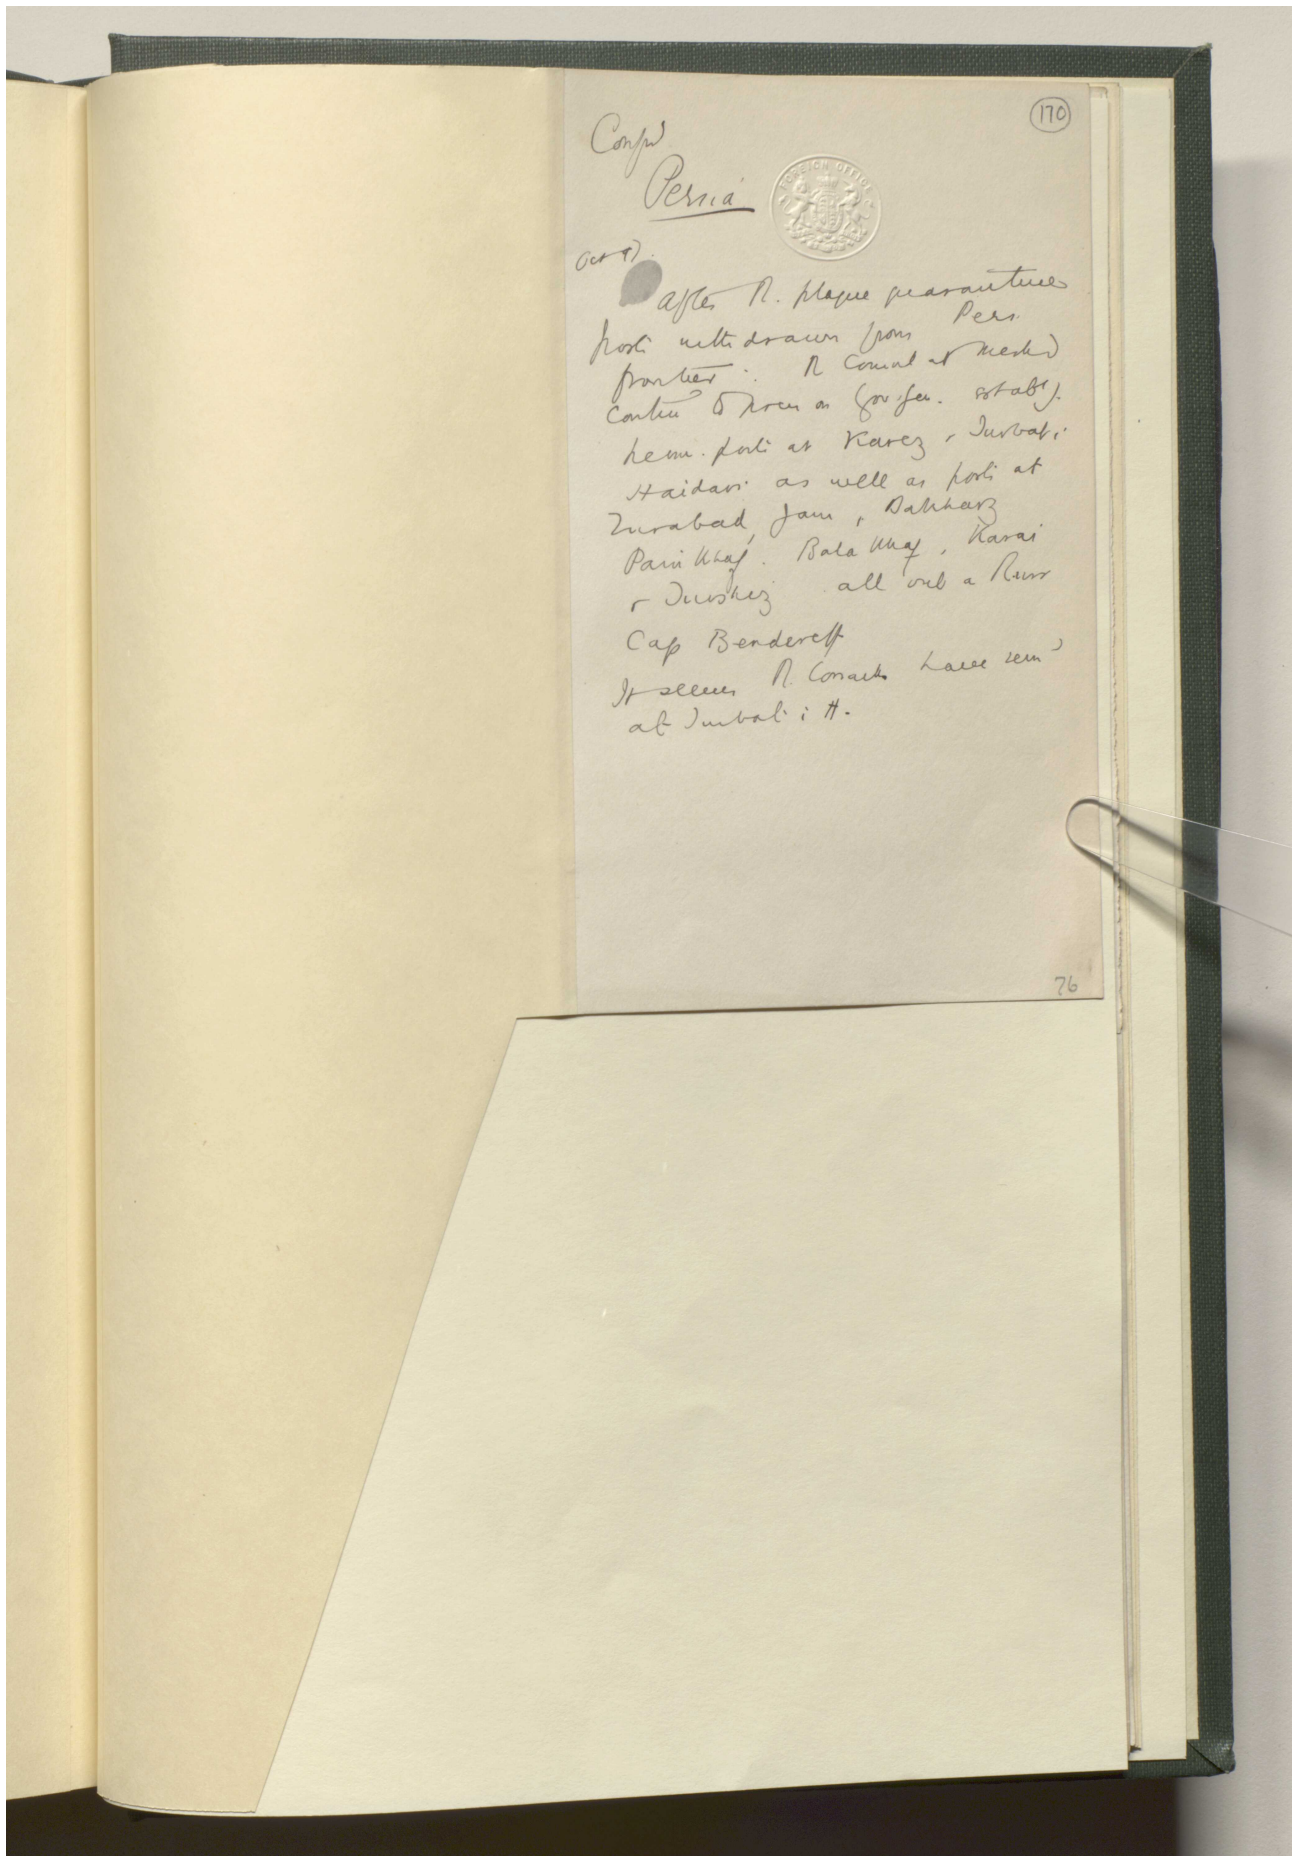 170
Conf^d
Persia
FOREIGN OFFICE
Oct 97.
After R. plague quarantine
posts withdrawn from Pers.
frontier. R Consul at Meshd
contin^d to press on Gov. Gen. establ^g.
perm. posts at Karez & Turbat i
Haidari as well as posts at
Zurabad, Jam, Bakharz
Pain Khaf. Bala Khaf, Karai
& Turshiz all und a Russ
Cap Bendereff
It seems R. Cossacks have rem^d
at Turbat i H.
76